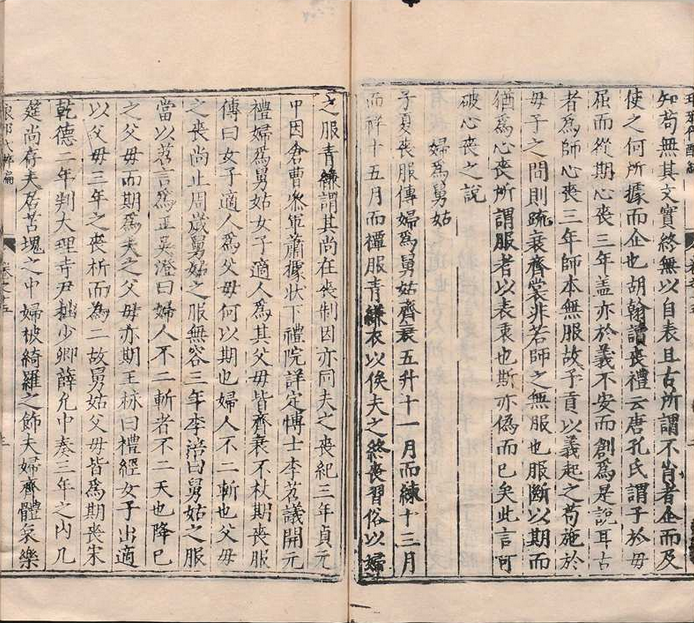 知苟無其文實終無以自表且古所謂不肖者企而及
使之何所據而企也胡翰讀喪禮云唐孔氏謂子於母
屈而從期心喪三年盖亦於義不安而創為是說耳古
者為師心喪三年師本無服故子貢以義起之苟施於
母子之間則疏衰齊裳非若師之無服也服斷以期而
猶為心喪所謂服者以表衷也斯亦偽而已矣此言可
破心喪之說
婦為舅姑
子夏喪服傳婦為舅姑齊衰五升十一月而練十三月
而祥十五月而禫服青縑衣以俟夫之終喪習俗以婦
之服青縑謂其尚在喪制因亦同夫之喪紀三年貞元
中因倉曹叅軍蕭據狀下禮院詳定博士李苕議開元
禮婦為舅姑女子適人為其父母皆齊衰不杖期喪服
傳曰女子適人為父母何以期也婦人不二斬也父母
之喪尚止周歲舅姑之服無容三年李涪曰舅姑之服
當以苕言為正吳澄曰婦人不二斬者不二天也降已
之父母而期為夫之父母亦期王栐曰禮經女子出適
以父母三年之喪析而為二故舅姑父母皆為期喪宋
乾德二年判大理寺尹拙少卿薛允中奏三年之內几
筵尚存夫居苫塊之中婦被綺羅之飾夫婦齊體哀樂